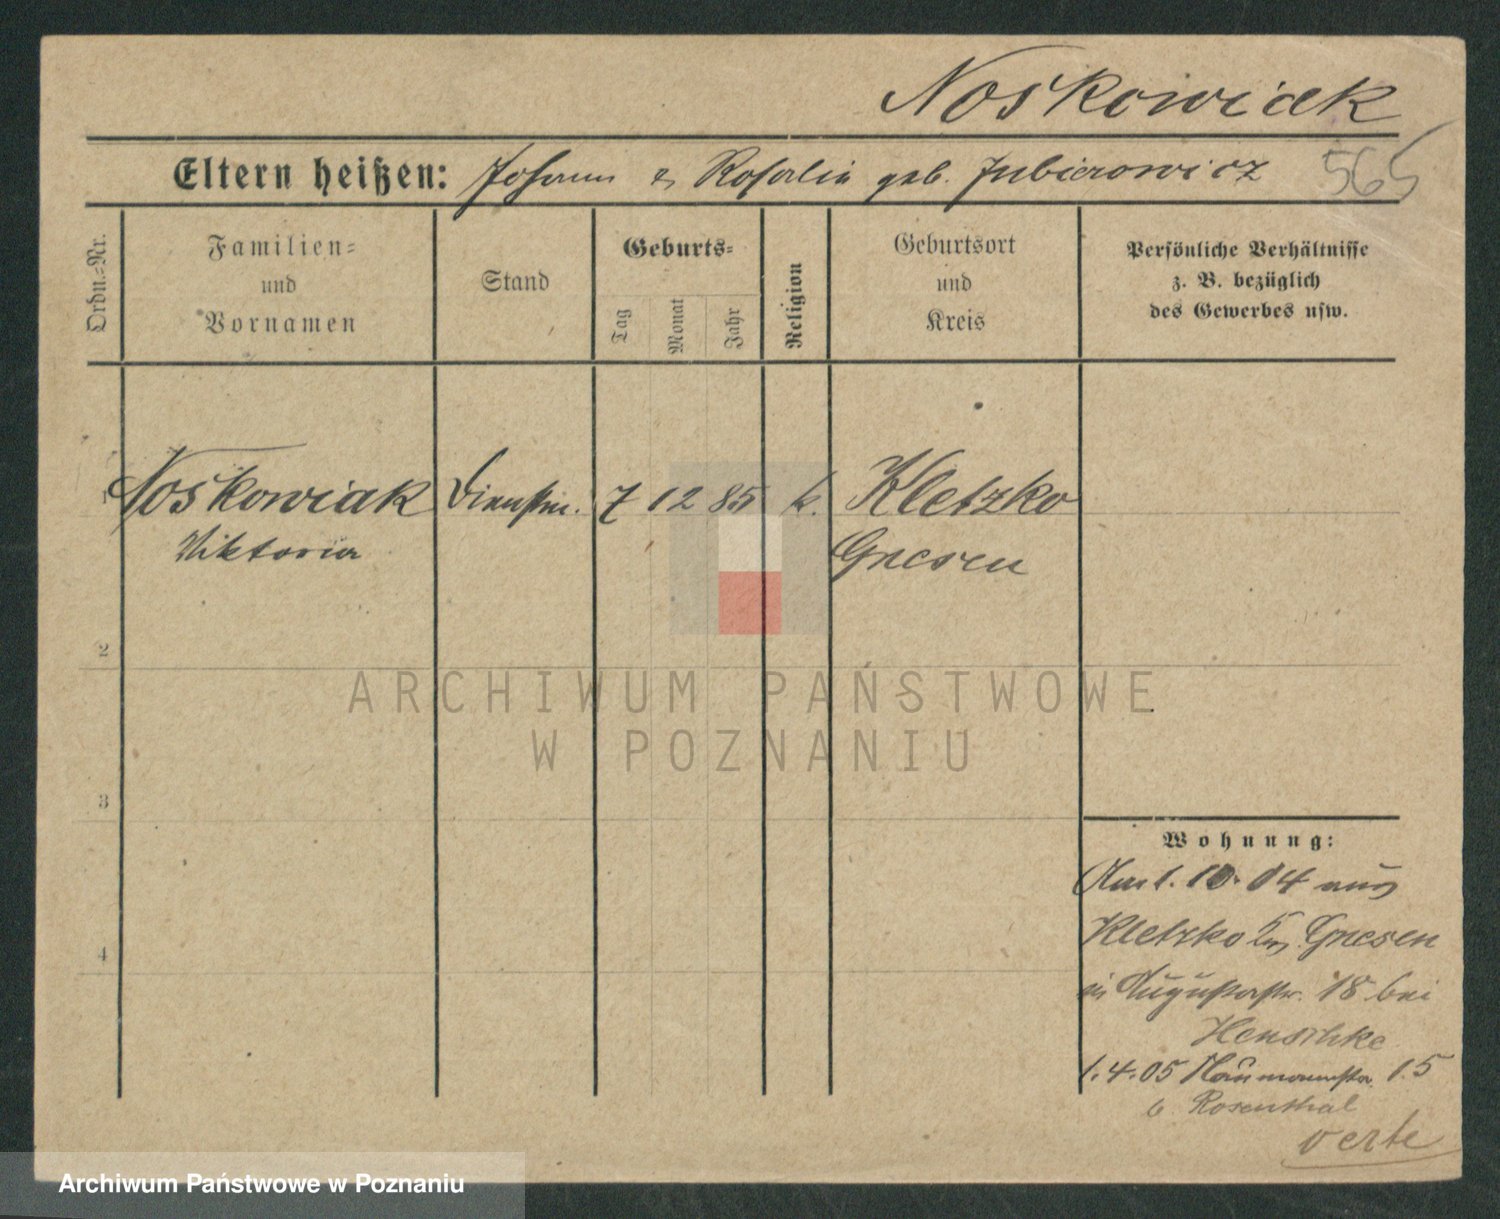 Noskowiak
Eltern heißen: Johann u. Rosalia geb. Jubierowicz 565
Ordn.-Nr.
Familien-
und
Vornamen
Stand
Geburts-
Tag
Monat
Jahr
Religion
Geburtsort
und
Kreis
Persönliche Verhältnisse
z. B. bezüglich
des Gewerbes usw.
1 Noskowiak Dienstm. 7 12 85 k. Kletzko
Viktoria Gnesen
2
ARCHIWUM PAŃSTWOWE
W POZNANIU
3
Wohnung:
Am 1. 10. 04 aus
Kletzko Gnesen
in Augustastr. 18 bei
Henschke
1.4.05 Naumannstr. 15
b. Rosenthal
4
verte
Archiwum Państwowe w Poznaniu